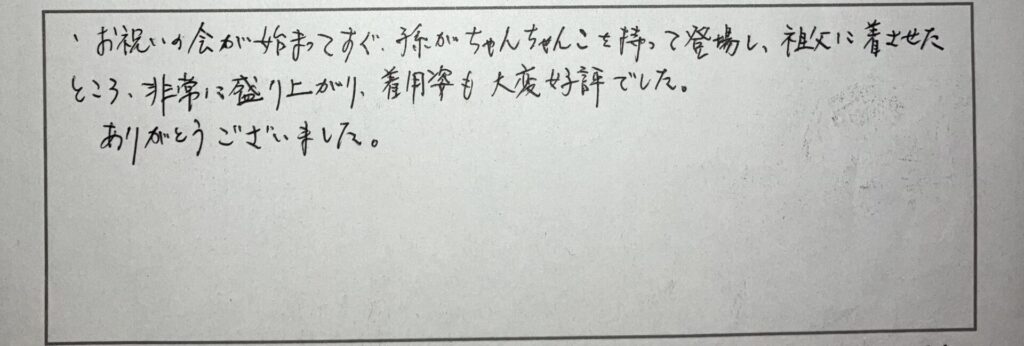 ・お祝いの会が始まってすぐ、孫がちゃんちゃんこを持って登場し、祖父に着させた
ところ、非常に盛り上がり、着用姿も大変好評でした。
ありがとうございました。